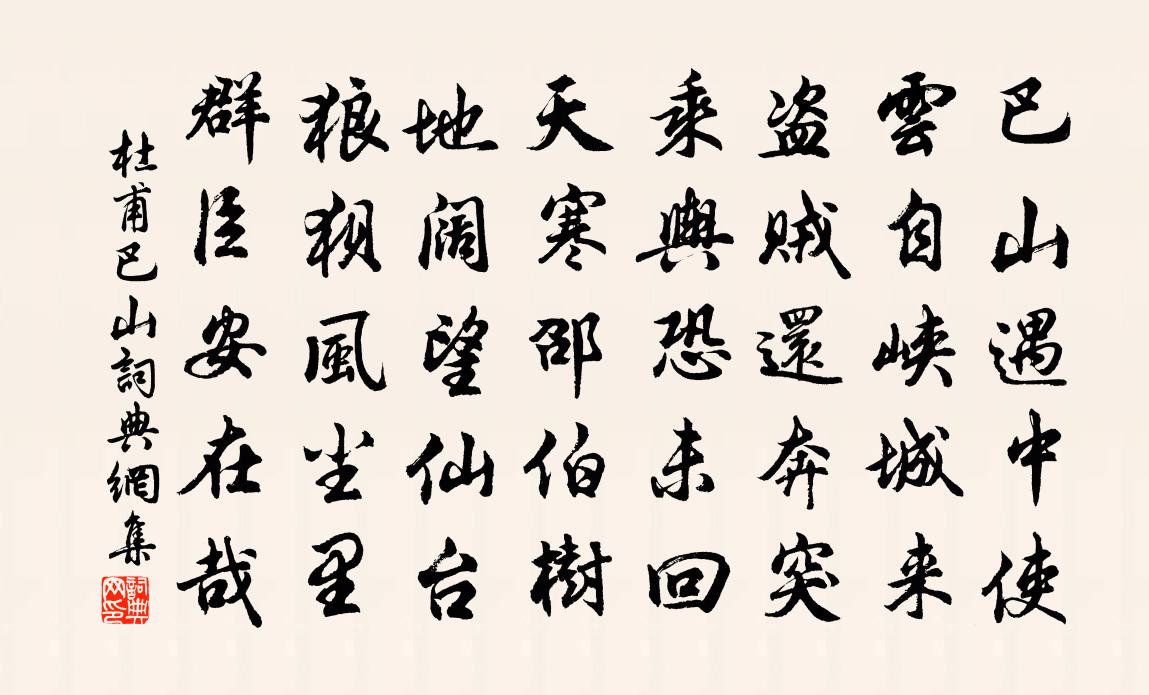 巴山遇中使
雲自峽城来
盗賊還奔突
乘輿恐未回
天寒邵伯樹
地闊望仙台
狼狽風尘里
群臣安在哉
杜甫巴山詞典網集
詞典网印